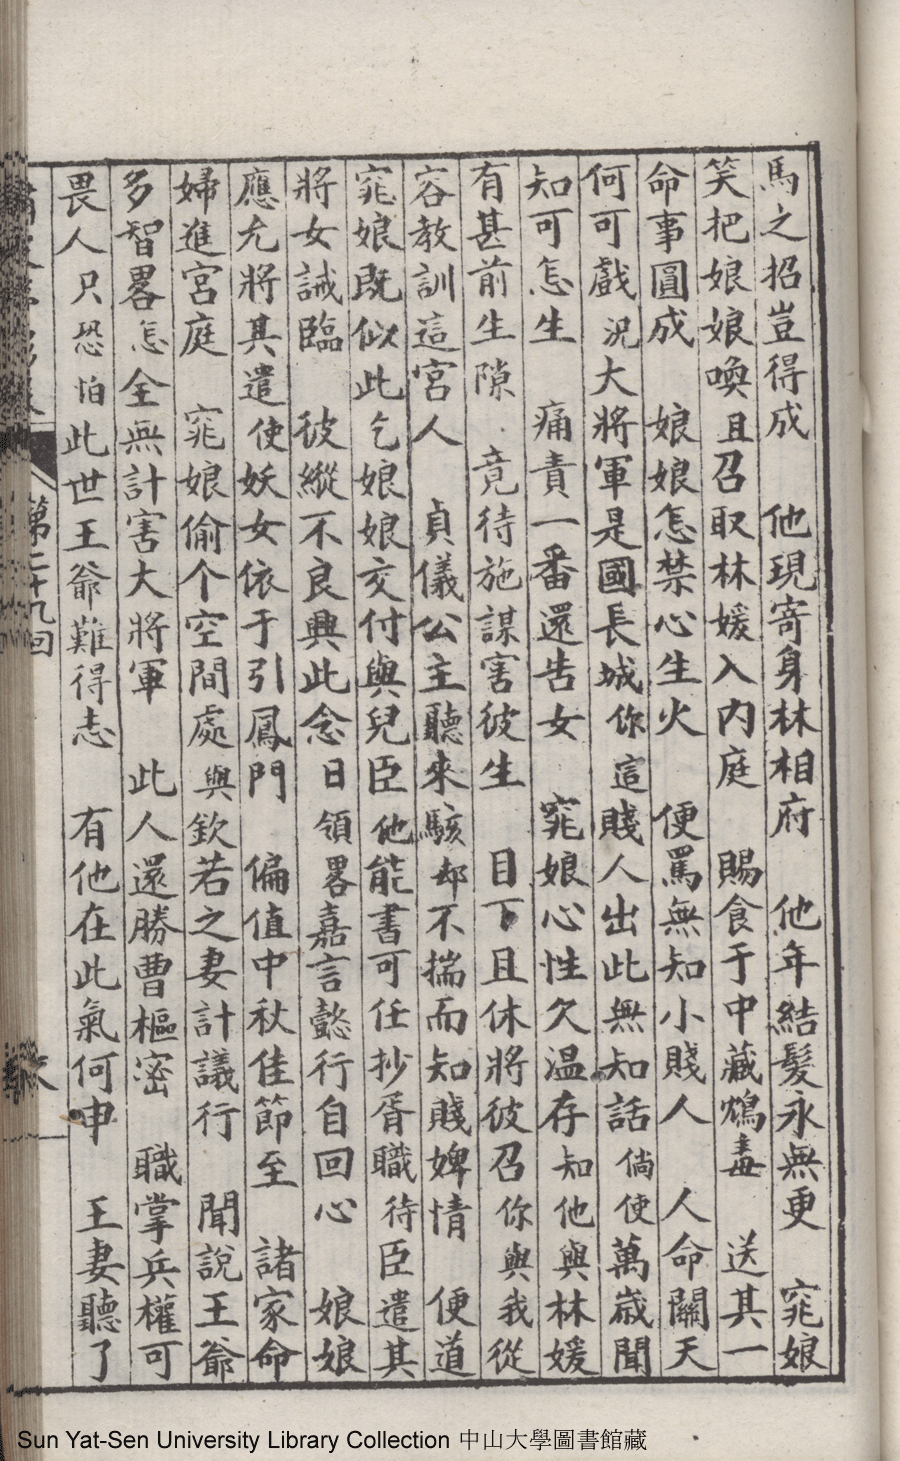 馬之招豈得成　他現寄身林相府　他年結髮永無更　窕娘
笑把娘娘喚且召取林媛入內庭　賜食于中藏鴆毒　送其一
命事圓成　娘娘怎禁心生火　便罵無知小賤人　人命關天
何可戲況大將軍是國長城你這賤人出此無知話倘使萬歲聞
知可怎生　痛責一番還告女　窕娘心性欠温存知他與林媛
有甚前生隙　竟待施謀害彼生　目下且休將彼召你與我從
容教訓這宮人　貞儀公主聽來駭却不揣而知賤婢情　便道
窕娘既似此乞娘娘交付與兒臣他能書可任抄胥職待臣遣其
將女誡臨　彼縱不良興此念日領畧嘉言懿行自回心　娘娘
應允將其遣使妖女依于引鳳門　偏值中秋佳節至　諸家命
婦進宮庭　窕娘偷个空間處與欽若之妻計議行　聞說王爺
多智畧怎全無計害大將軍　此人還勝曹樞密　職掌兵權可
畏人只恐怕此世王爺難得志　有他在此氣何申　王妻聽了
第二十九回
Sun Yat-Sen University Library Collection 中山大學圖書館藏